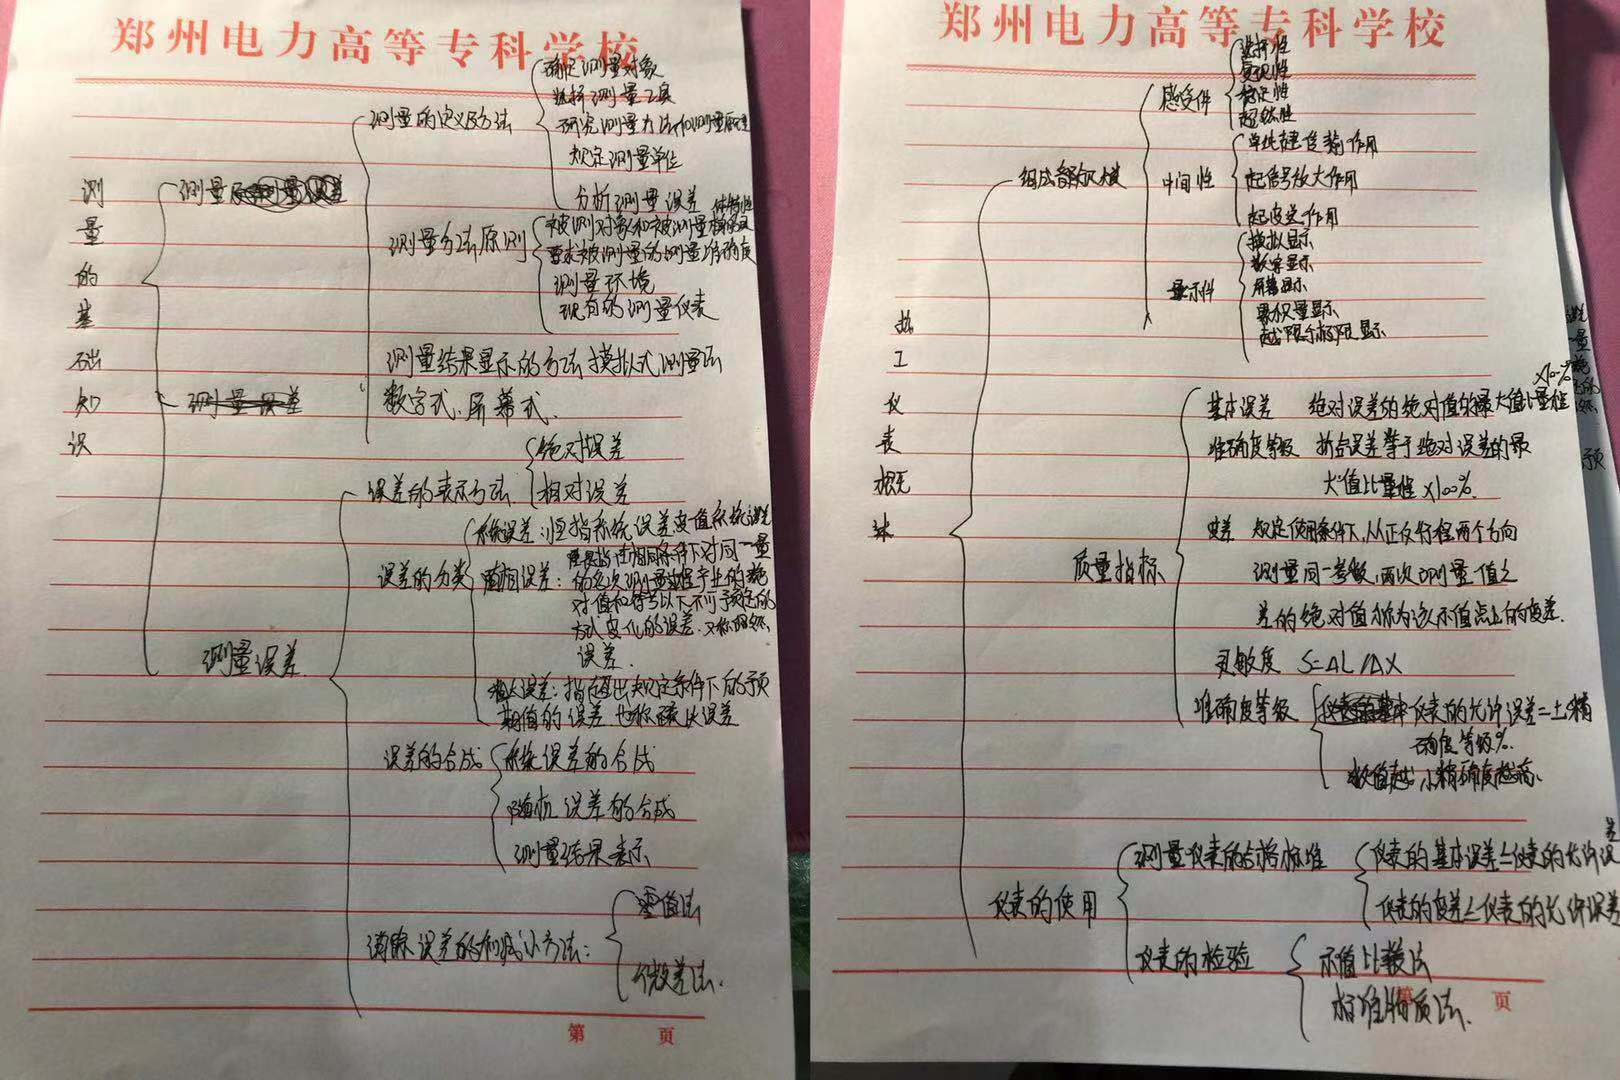 郑州电力高等专科学校
测量的基础知识
测量
测量误差
测量的定义及方法
确定测量对象
选择测量工具
研究测量方法和测量原理
规定测量单位
分析测量误差
测量方法原则
被测对象和被测量
要求被测量的测量准确度
测量环境
现有的测量仪表
测量结果显示的方法 模拟式测量法
数字式、屏幕式.
测量误差
误差的表示方法
绝对误差
相对误差
误差的分类
系统误差：恒指系统误差变值系统误差
是指在相同条件下对同一量
的多次测量过程产生的绝
对值和符号以不可预定的
方式变化的误差.
误差.
粗大误差：指超出规定条件下的预
期值的误差 也称疏失误差
误差的合成
系统误差的合成
随机误差的合成
测量结果表示
消除误差的和减小方法：
零值法
微差法.
第 页
郑州电力高等专科学校
热工仪表概述
组成部分及
感受件
选择性
复现性
稳定性
超然性
中间件
单纯起传输作用
起信号放大作用
起变送作用
显示件
模拟显示
数字显示
屏幕显示
累积量显示
越限和极限显示
质量指标
基本误差 绝对误差的绝对值的最大值比量程
×10-%
准确度等级 折合误差等于绝对误差的最
大值比量程 ×100%.
变差 规定使用条件下,从正反行程两个方向
测量同一参数,两次测量值之
差的绝对值称为该示值点上的变差.
灵敏度 S=ΔL/ΔX
准确度等级
仪表的允许误差=±精
确度等级%.
数值越小精确度越高.
仪表的使用
测量仪表的合格标准
仪表的基本误差≤仪表的允许误
差
仪表的变差≤仪表的允许误差
仪表的检验
示值比较法
标准物质法.
第 页